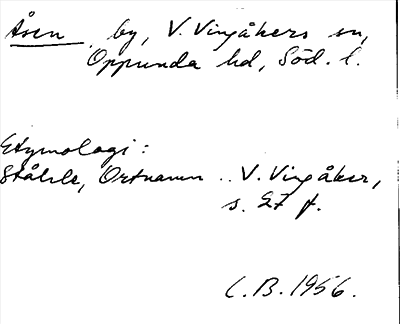 Åsen, by, V. Vingåkers sn,
Oppunda hd, Söd. l.
Etymologi:
Ståhle, Ortnamn .. V. Vingåker,
s. 27 f.
C.B. 1956.